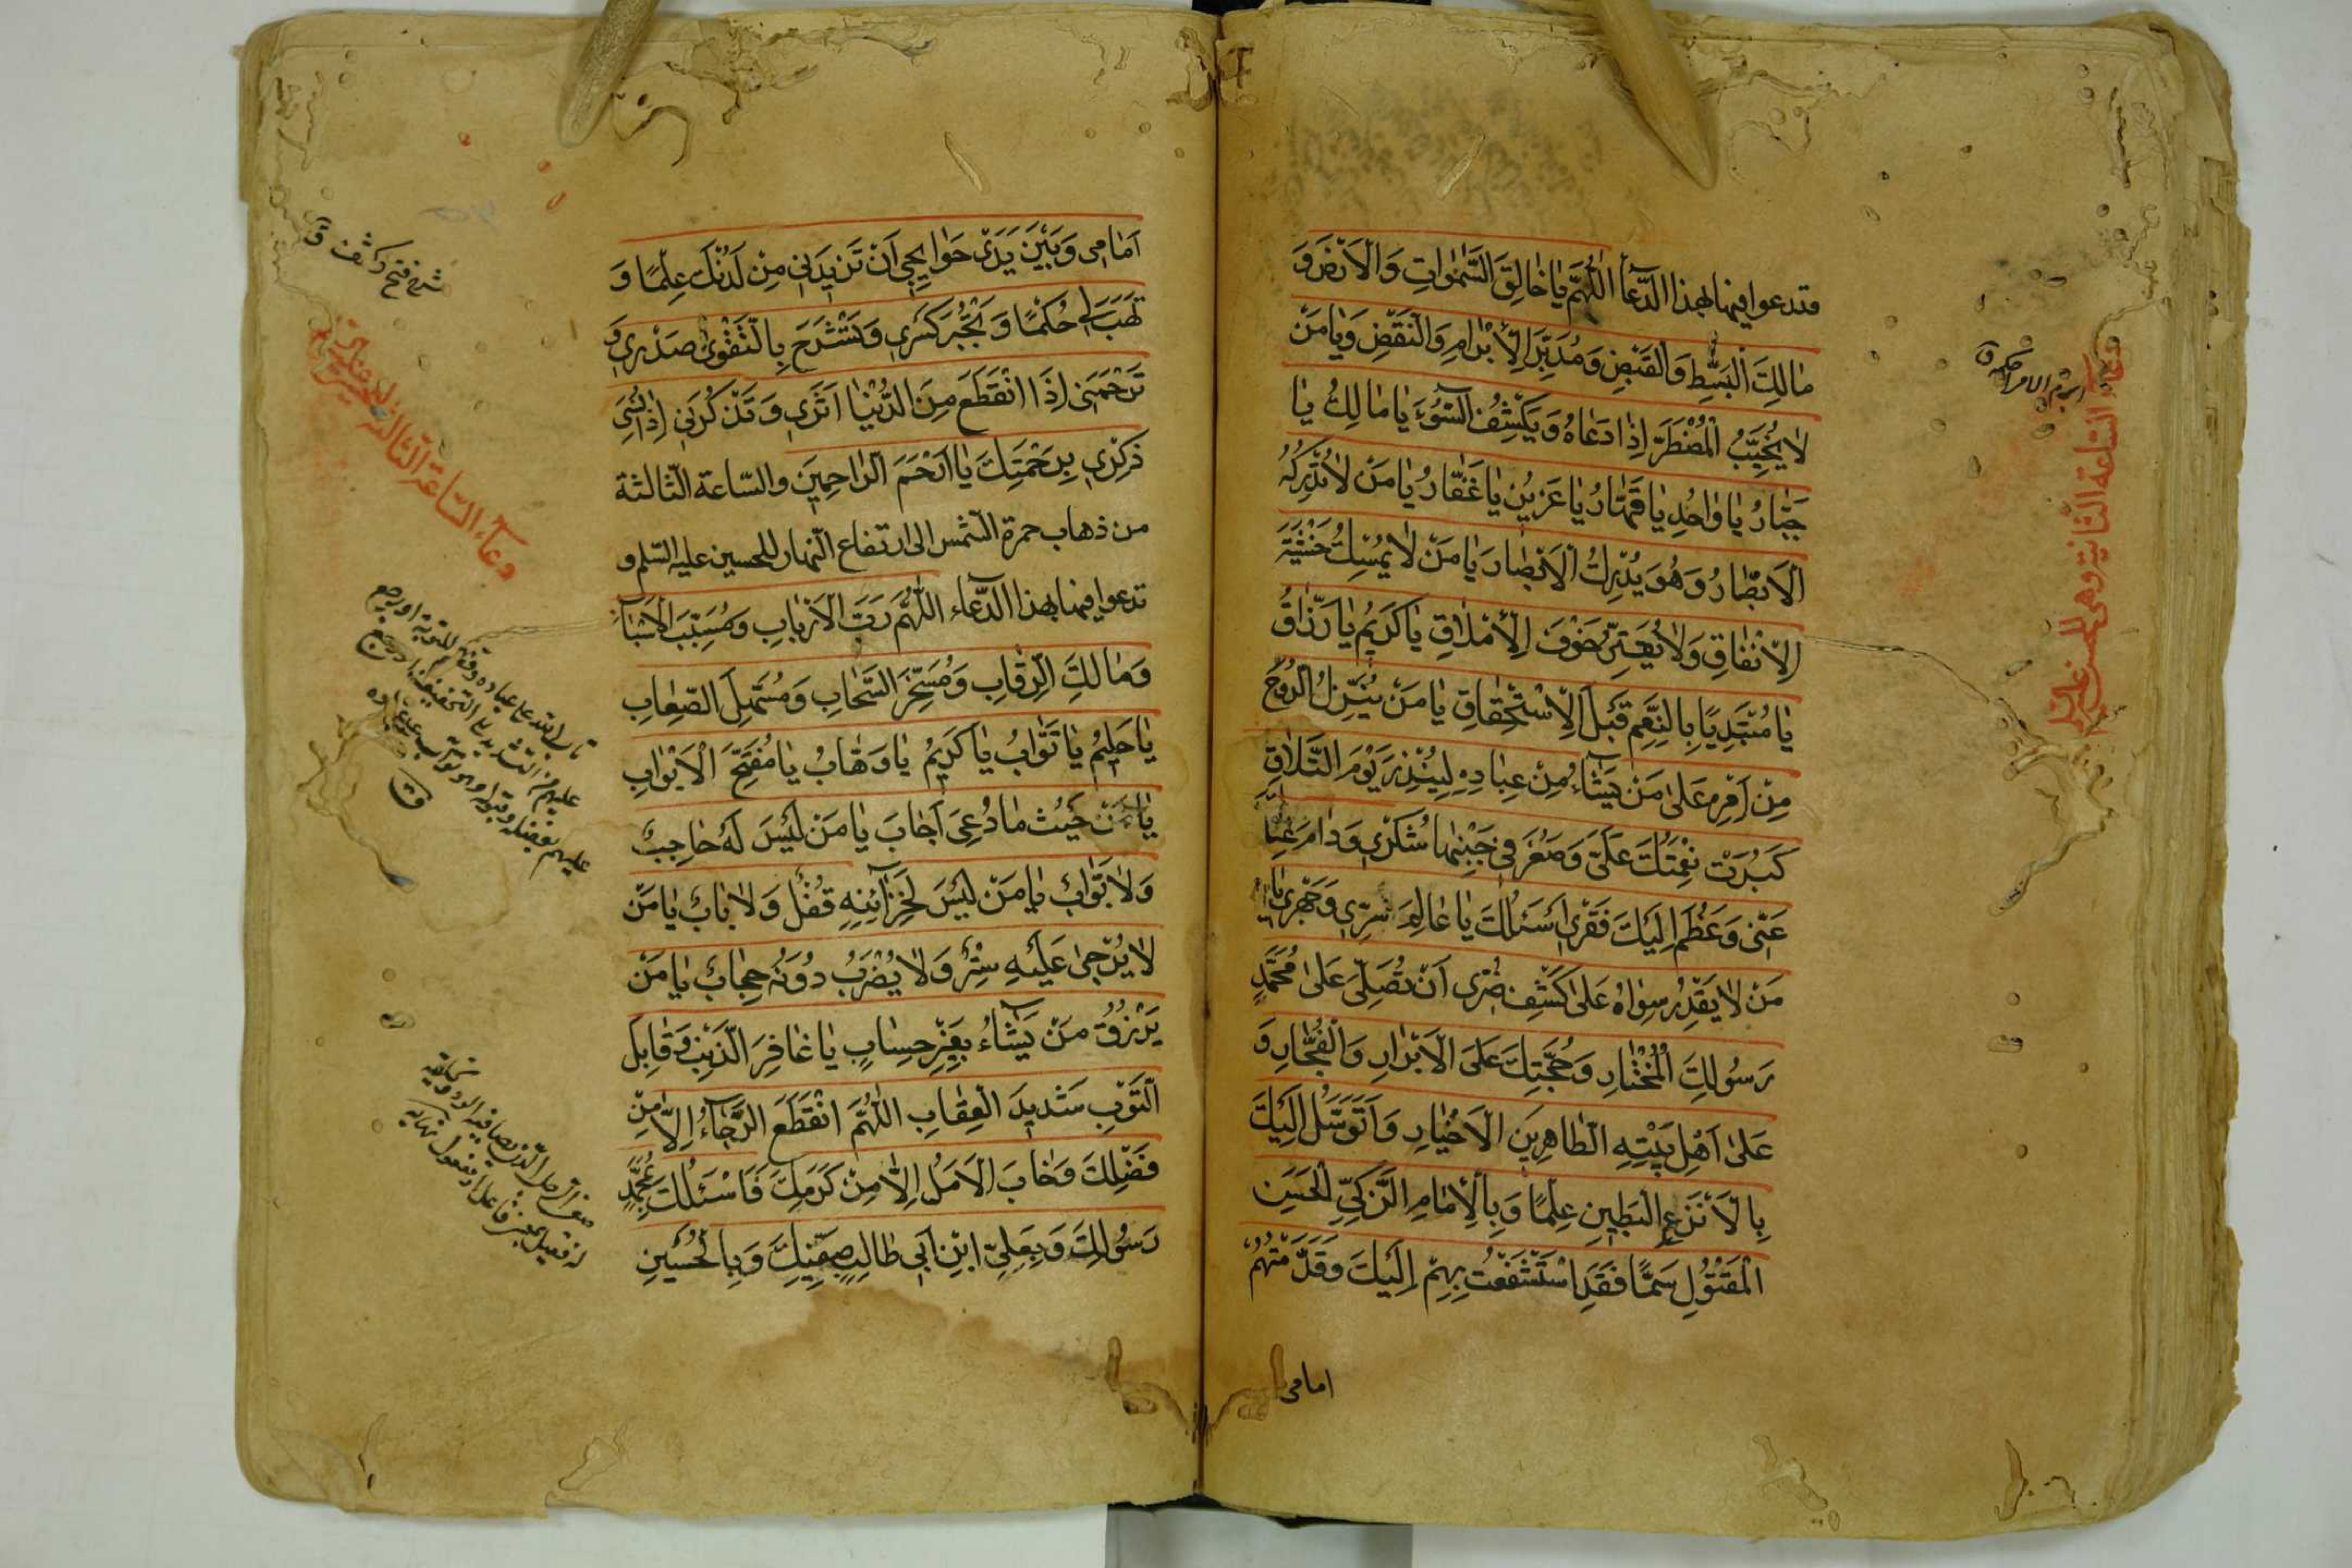 وتدعوا فيها بهذا الدّعاء اَللّٰهُمَّ يٰا خٰالِقَ السَّمٰوٰاتِ وَالْاَرْضِ وَ
مٰالِكَ الْبَسْطِ وَالْقَبْضِ وَمُدَبِّرَ الْاِبْرٰامِ وَالنَّقْضِ وَيٰا مَنْ
لٰا يُخَيِّبُ الْمُضْطَرَّ اِذٰا دَعٰاهُ وَيَكْشِفُ السُّوۤءَ يٰا مٰالِكُ يٰا
جَبّٰارُ يٰا وٰاحِدُ يٰا قَهّٰارُ يٰا عَزِيْزُ يٰا غَفّٰارُ يٰا مَنْ لٰا تُدْرِكُهُ
الْاَبْصٰارُ وَهُوَ يُدْرِكُ الْاَبْصٰارَ يٰا مَنْ لٰا يُمْسِكُ خَشْيَةَ
الْاِنْفٰاقِ وَلٰا يُقَتِّرُ خَوْفَ الْاِمْلٰاقِ يٰا كَرِيْمُ يٰا رَزّٰاقُ
يٰا مُبْتَدِيًا بِالنِّعَمِ قَبْلَ الْاِسْتِحْقٰاقِ يٰا مَنْ يُنَزِّلُ الرُّوْحَ
مِنْ اَمْرِهِ عَلٰى مَنْ يَشٰاۤءُ مِنْ عِبٰادِهِ لِيُنْذِرَ يَوْمَ التَّلٰاقِ
كَبُرَتْ نِعْمَتُكَ عَلَيَّ وَصَغُرَ فِي جَنْبِهٰا شُكْرِي وَدٰامَ غِنٰاكَ
عَنِّي وَعَظُمَ اِلَيْكَ فَقْرِي اَسْئَلُكَ يٰا عٰالِمَ سِرِّي وَجَهْرِي يٰا
مَنْ لٰا يَقْدِرُ سِوٰاهُ عَلٰى كَشْفِ ضُرِّي اَنْ تُصَلِّيَ عَلٰى مُحَمَّدٍ
رَسُولِكَ الْمُخْتٰارِ وَحُجَّتِكَ عَلَى الْاَبْرٰارِ وَالْفُجّٰارِ وَ
عَلٰى اَهْلِ بَيْتِهِ الطّٰاهِرِينَ الْاَخْيٰارِ وَاَتَوَسَّلُ اِلَيْكَ
بِالْاَنْزَعِ الْبَطِينِ عِلْمًا وَبِالْاِمٰامِ الزَّكِيِّ الْحَسَنِ
الْمَقْتُوْلِ سَمًّا فَقَدِ اسْتَشْفَعْتُ بِهِمْ اِلَيْكَ وَقَدَّمْتُهُمْ
امامى
دعاء الساعة الثانية وهى للحسن
اَمٰامِي وَبَيْنَ يَدَيْ حَوٰايِجِي اَنْ تَزِيدَنِي مِنْ لَدُنْكَ عِلْمًا وَ
تَهَبَ لِي حُكْمًا وَتَجْبُرَ كَسْرِي وَتَشْرَحَ بِالتَّقْوٰى صَدْرِي وَ
تَرْحَمَنِي اِذَا انْقَطَعَ مِنَ الدُّنْيٰا اَثَرِي وَتَذْكُرَنِي اِذٰا نُسِيَ
ذِكْرِي بِرَحْمَتِكَ يٰا اَرْحَمَ الرّٰاحِمِيَن والسّاعة الثّالثة
من ذهاب حمرة الشّمس الى ارتفاع النّهار للحسين عليه السّلم و
تدعوا فيها بهذا الدّعاء اَللّٰهُمَّ رَبَّ الْاَرْبٰابِ وَمُسَبِّبَ الْاَسْبٰابِ
وَمٰالِكَ الرِّقٰابِ وَمُسَخِّرَ السَّحٰابِ وَمُسَهِّلَ الصِّعٰابِ
يٰا حَلِيْمُ يٰا تَوّٰابُ يٰا كَرِيْمُ يٰا وَهّٰابُ يٰا مُفَتِّحَ الْاَبْوٰابِ
يٰا مَنْ حَيْثُ مٰا دُعِيَ اَجٰابَ يٰا مَنْ لَيْسَ لَهُ حٰاجِبٌ
وَلٰا بَوّٰابٌ يٰا مَنْ لَيْسَ لِخَزٰائِنِهِ قُفْلٌ وَلٰا بٰابٌ يٰا مَنْ
لٰا يُرْخٰى عَلَيْهِ سِتْرٌ وَلٰا يُضْرَبُ دُوْنَهُ حِجٰابٌ يٰا مَنْ
يَرْزُقُ مَنْ يَشٰاۤءُ بِغَيْرِ حِسٰابٍ يٰا غٰافِرَ الذَّنْبِ وَقٰابِلَ
التَّوْبِ شَدِيدَ الْعِقٰابِ اَللّٰهُمَّ انْقَطَعَ الرَّجٰاۤءُ اِلّٰا مِنْ
فَضْلِكَ وَخٰابَ الْاَمَلُ اِلّٰا مِنْ كَرَمِكَ فَاَسْئَلُكَ بِمُحَمَّدٍ
رَسُوْلِكَ وَبِعَلِيِّ ابْنِ اَبِي طٰالِبٍ صَفِيِّكَ وَبِالْحُسَيْنِ
دعاء السّاعة الثالثة